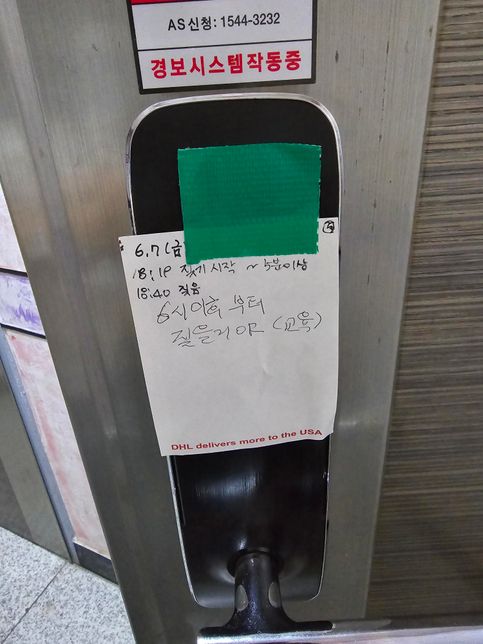 AS신청: 1544-3232
경보시스템작동중
6.7 (금
18:18 짖기 시작 ~ 5분이상
18:40 짖음
6시이후 부터
(교육)
DHL delivers more to the USA